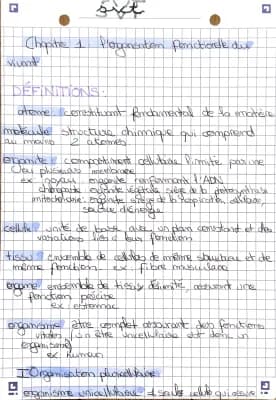 SVT
Chapitre 1 l'organisation fonctionelle du
vivant
DÉFINITIONS:
atome: constituant fondamental de la matière
molécule: structure chimique qui comprend
au moins 2 atomes
organite: compartiment cellulaire limité par une
ou plusieurs membrane
ex: noyau organite renfermant l'ADN
chloroplaste: organite végétale siège de la photosynthèse
mitochondrie: organite siège de la respiration cellulaire,
source d'énergie
cellule: unité de base avec un plan constant et des
variations liés à leur fonction
tissu: ensemble de cellules de même structure et de
même fonction ex: fibre musculaire
organe: ensemble de tissus délimité, assurant une
fonction précise
ex: estomac
organisme: être complet assurant des fonctions
vitales, un être unicellulaire est donc un
organisme
ex: humain
I Organisation pluricellulaire
organisme unicellulaire: 1 seule cellule qui assure